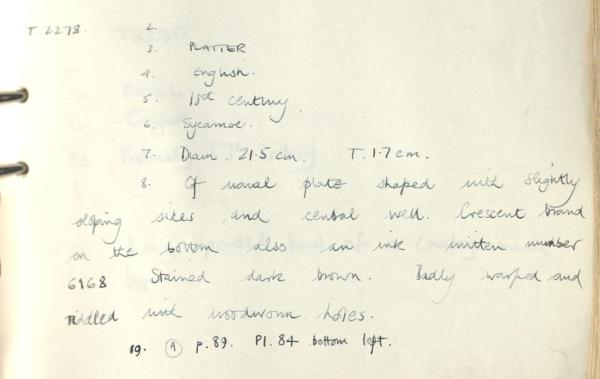 T.2278. 2.
3. PLATTER
4. English.
5. 18th century.
6. Sycamore.
7. Diam. 21.5 cm. T. 1.7 cm.
8. Of usual plate shaped with slightly
sloping sides and central well. Crescent brand
on the bottom also an ink written number
6168 Stained dark brown. Badly warped and
riddled with woodworm holes.
19. (A) p.89. Pl.84 bottom left.